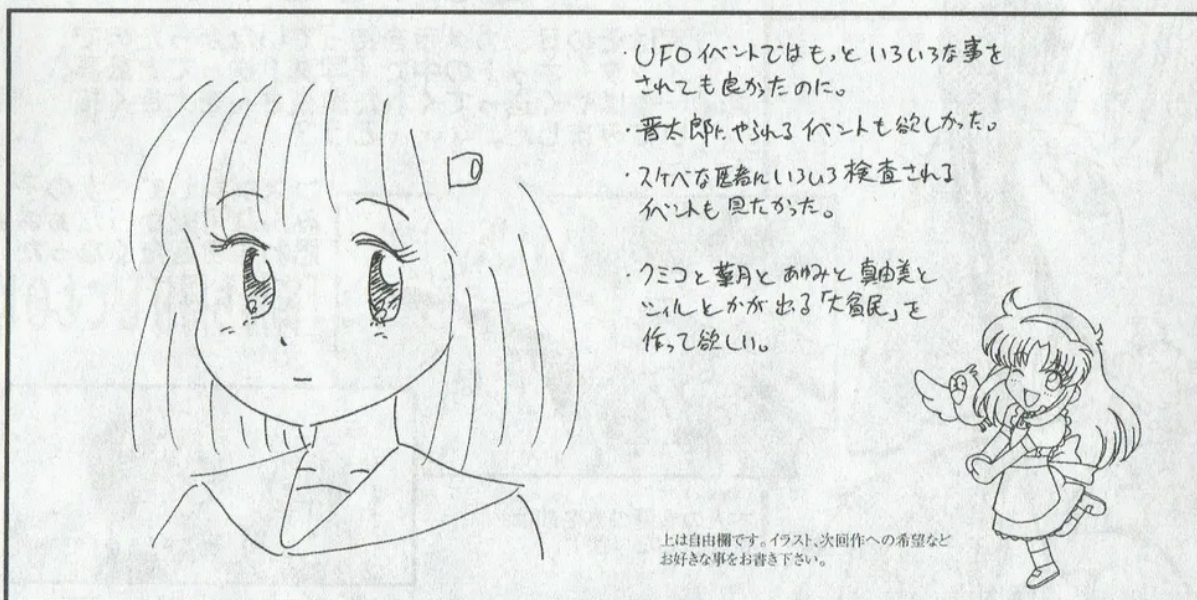 ・UFOイベントではもっといろいろな事を
されても良かったのに。
・晋太郎にやられるイベントも欲しかった。
・スケベな医者にいろいろ検査される
イベントも見たかった。
・クミコと葉月とあゆみと真由美と
シィルとかが出る「大貧民」を
作って欲しい。
上は自由欄です。イラスト、次回作への希望など
お好きな事をお書き下さい。